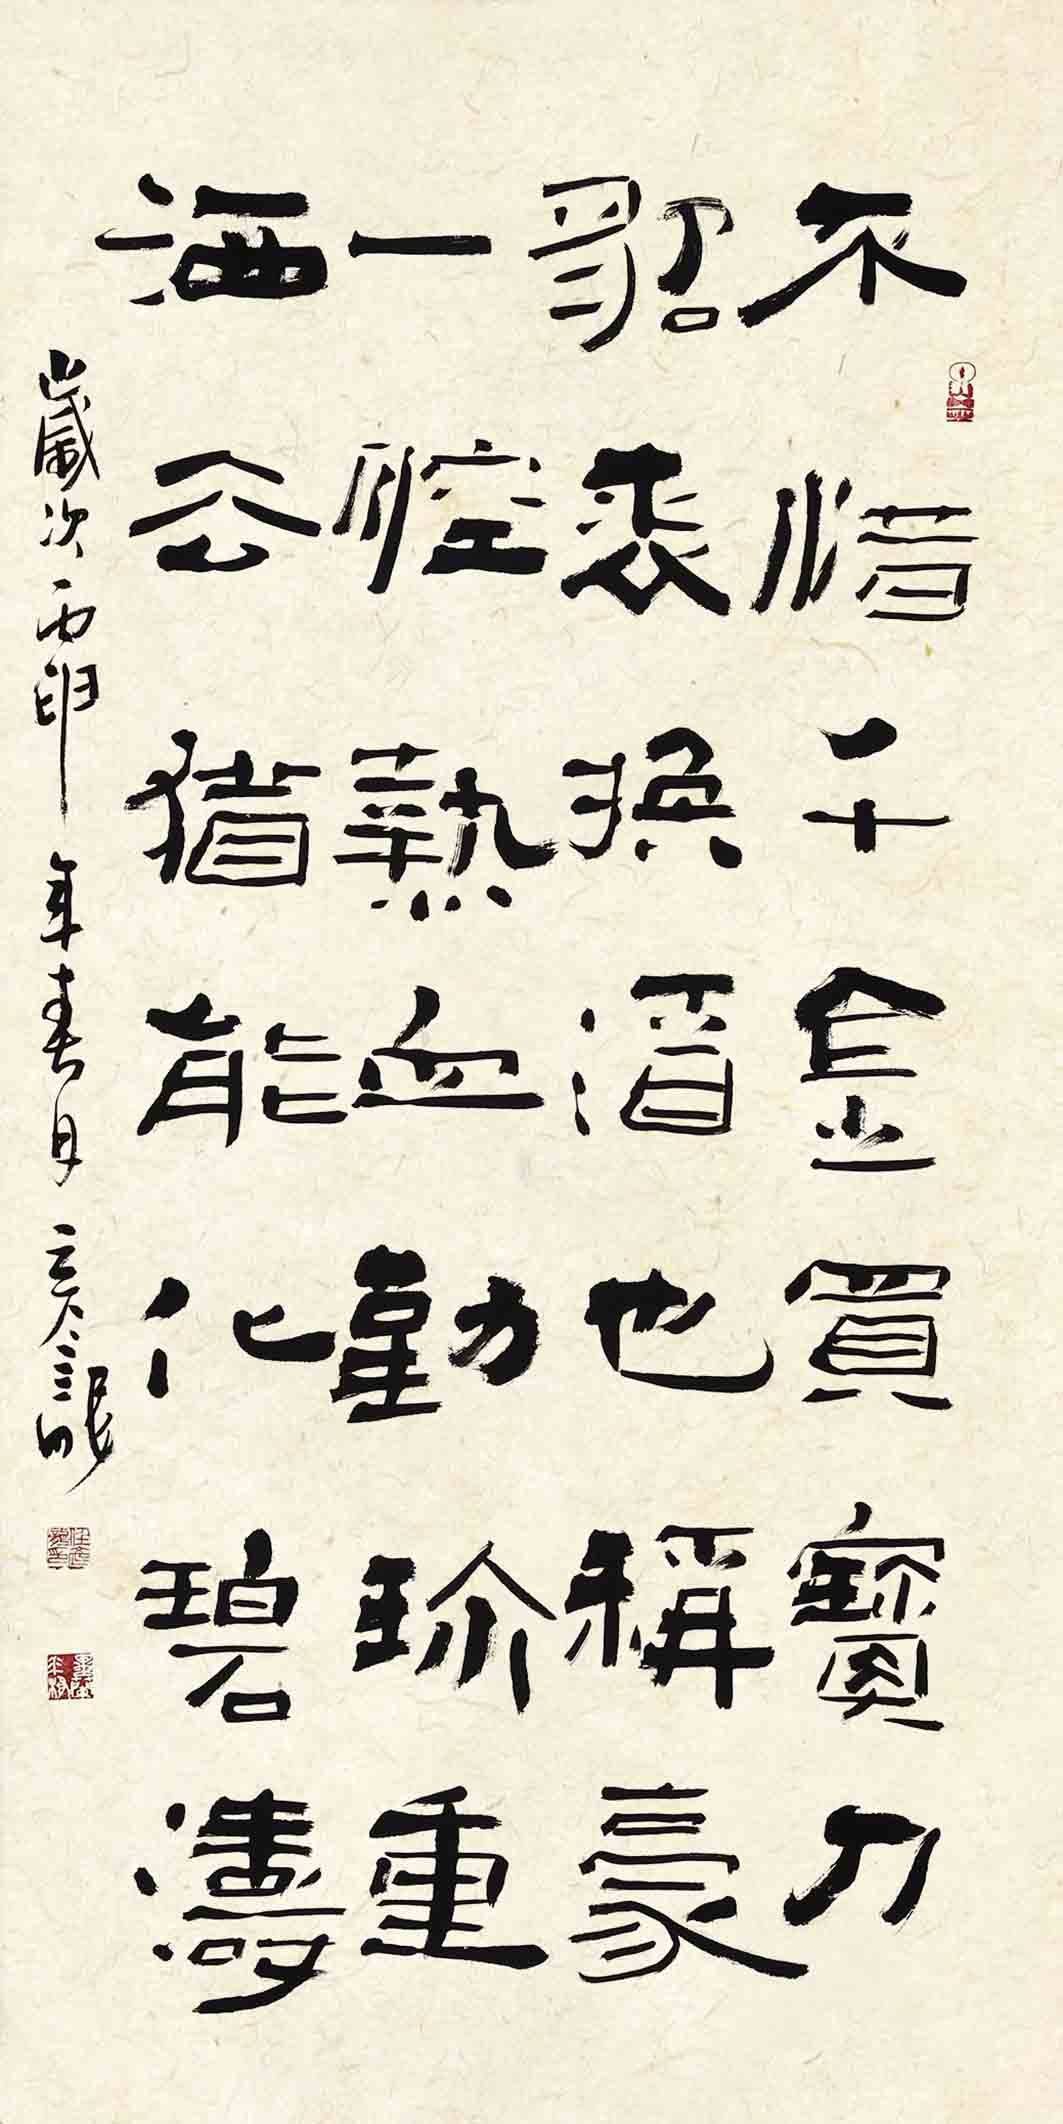 不惜千金買寶刀
貂裘換酒也稱豪
一腔熱血勤珍重
洒去猶能化碧濤
歲次丙申年春月